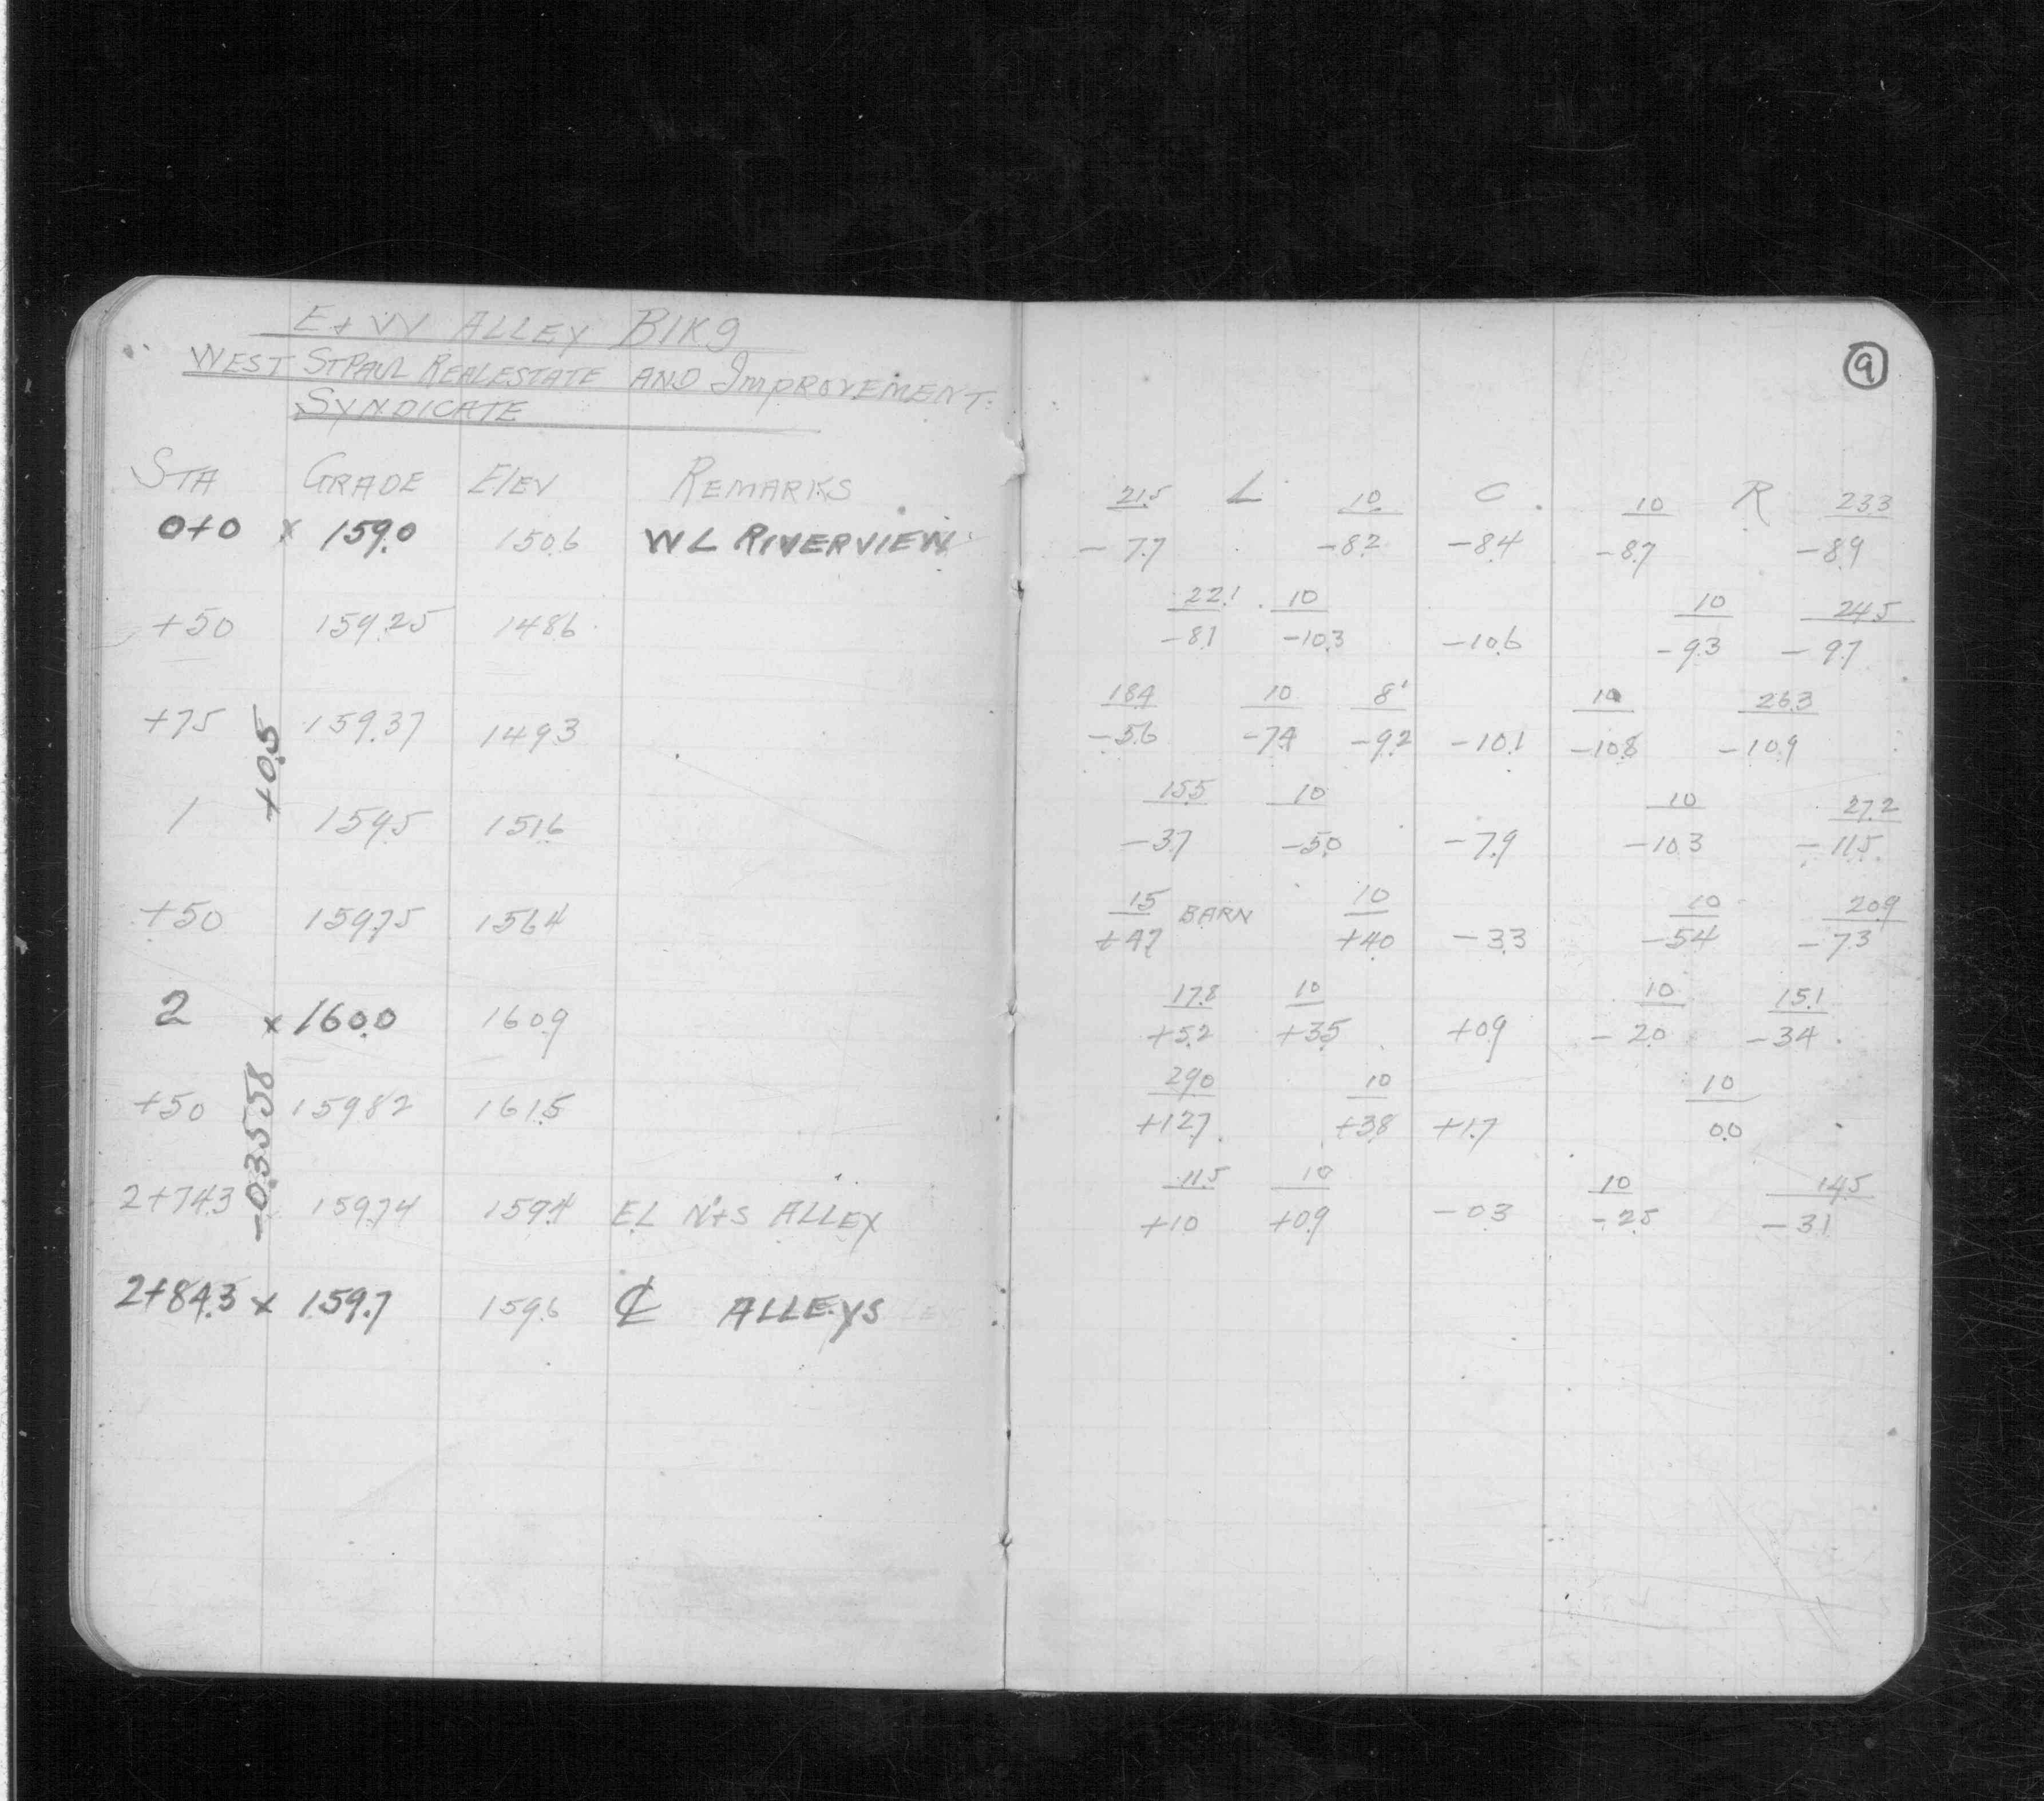 E + W ALLEY BlK 9
WEST ST PAUL REALESTATE AND IMPROVEMENT.
SYNDICATE
9
STA GRADE ElEV REMARKS 21.5 L 10 C 10 R 23.3
0+0 x 159.0 150.6 WL RIVERVIEW -7.7 -8.2 -8.4 -8.7 -8.9
22.1 10 10 24.5
+50 159.25 148.6 -8.1 -10.3 -10.6 -9.3 -9.7
18.4 10 8' 10 26.3
+75 159.37 149.3 -5.6 -7.4 -9.2 -10.1 -10.8 -10.9
+0.5
15.5 10 10 27.2
1 159.5 151.6 -3.7 -5.0 -7.9 -10.3 -11.5
15 BARN 10 10 20.9
+50 159.75 156.4 +4.7 +4.0 -3.3 -5.4 -7.3
17.8 10 10 15.1
2 x 160.0 160.9 +5.2 +3.5 +0.9 -2.0 -3.4
29.0 10 10
+50 159.82 161.5 +12.7 +3.8 +1.7 0.0
-0.3558
11.5 10 10 14.5
2+74.3 159.74 159.4 EL N+S ALLEY +1.0 +0.9 -0.3 -2.5 -3.1
2+84.3 x 159.7 159.6 ℄ ALLEYS